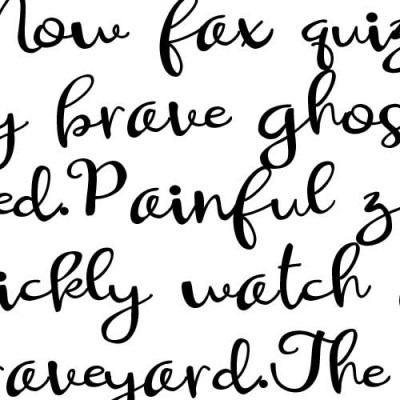 Now fax quiz
y brave ghos
ed.Painful z
ickly watch
raveyard.The